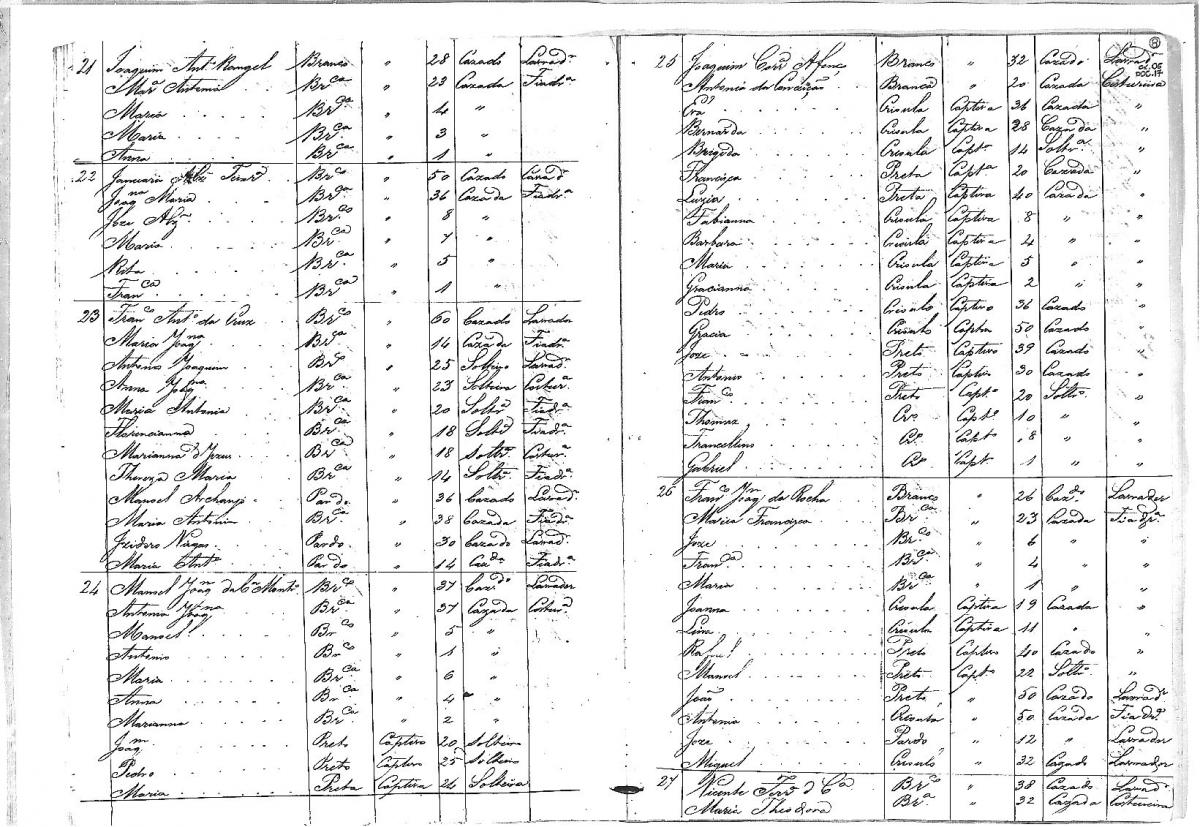 21 Joaquim Antº Rangel Branco " 28 Cazado Lavadr
Mª Antonia Brca " 23 Cazada Fiadrª
Maria Brca " 4 "
Maria Brca " 3 "
Anna Brca " 1 "
22 Januario Brco " 50 Cazado Lavadr
Joaqna Maria Brca " 36 Cazada Fiadrª
Joze Brco " 8 "
Maria Brca " 7 "
Rita Brca " 5 "
Franca Brca " 1 "
23 Franco Antº da Cruz Brco " 60 Cazado Lavrador
Maria Joaqna Brca " 46 Cazada Fiadrª
Antonio Joaquim Brco " 25 Solteiro Lavadr
Anna Joaqna Brca " 23 Solteira Costurª
Maria Antonia Brca " 20 Soltrª Fiadrª
Florencianna Brca " 18 Soltrª Fiadrª
Marianna d'Jezus Brca " 18 Soltrª Costurª
Thereza Maria Brca " 14 Soltrª Fiadrª
Manoel Archanjo Pardo " 36 Cazado Lavadr
Maria Antonia Brca " 38 Cazada Fiadrª
Izidoro Pardo " 30 Cazado Lavadr
Maria Antª Pardo " 14 Cazda Fiadrª
24 Manoel Joaqm da Cª Brco " 37 Cazdo Lavrador
Antonia Joaqna Brca " 37 Cazada Costurª
Manoel Brco " 5 "
Antonio Brco " 1 "
Maria Brca " 6 "
Anna Brca " 4 "
Marianna Brca " 2 "
Joaqm Preto Captivo 20 Solteiro
Pedro Preto Captivo 25 Solteiro
Maria Preta Captiva 24 Solteira
8
CX.05
DOC.17
25 Joaquim Branco " 32 Cazado Lavrad
Antonia da Conceição Branca " 20 Cazada Costureira
Eva Crioula Captiva 36 Cazada "
Bernarda Crioula Captiva 28 Cazada "
Crioula Captª 14 Soltrª "
Francisca Preta Captª 20 Cazada "
Luzia Preta Captiva 40 Cazada "
Fabianna Crioula Captiva 8 " "
Barbara Crioula Captiva 4 " "
Maria Crioula Captiva 5 " "
Gracianna Crioula Captiva 2 " "
Pedro Crioulo Captivo 36 Cazado "
Gracia Crioulo Captivo 50 Cazado "
Joze Preto Captivo 39 Cazado "
Antonio Preto Captivo 30 Cazado "
Franco Preto Captº 20 Soltrº "
Thomaz Cro Captº 10 " "
Francellino Cro Captº 8 " "
Gabriel Cro Captº 1 " "
26 Franco Joaqm da Rocha Branco " 26 Cazdo Lavrador
Maria Francisca Brca " 23 Cazada Fiadrª
Joze Brco " 6 " "
Franca Brca " 4 " "
Maria Brca " 1 " "
Joanna Crioula Captiva 19 Cazada "
Lina Crioula Captiva 11 " "
Rafael Preto Captivo 40 Cazado "
Manoel Preto Captº 22 Soltrº "
João Preto " 50 Cazado Lavradr
Antonia Crioula " 50 Cazada Fiadrª
Joze Pardo " 12 " Lavrador
Miguel Crioulo " 32 Cazado Lavrador
27 Vicente Ferrª d Cª Brco " 38 Cazado Lavradr
Maria Theodora Brª " 32 Cazada Costureira